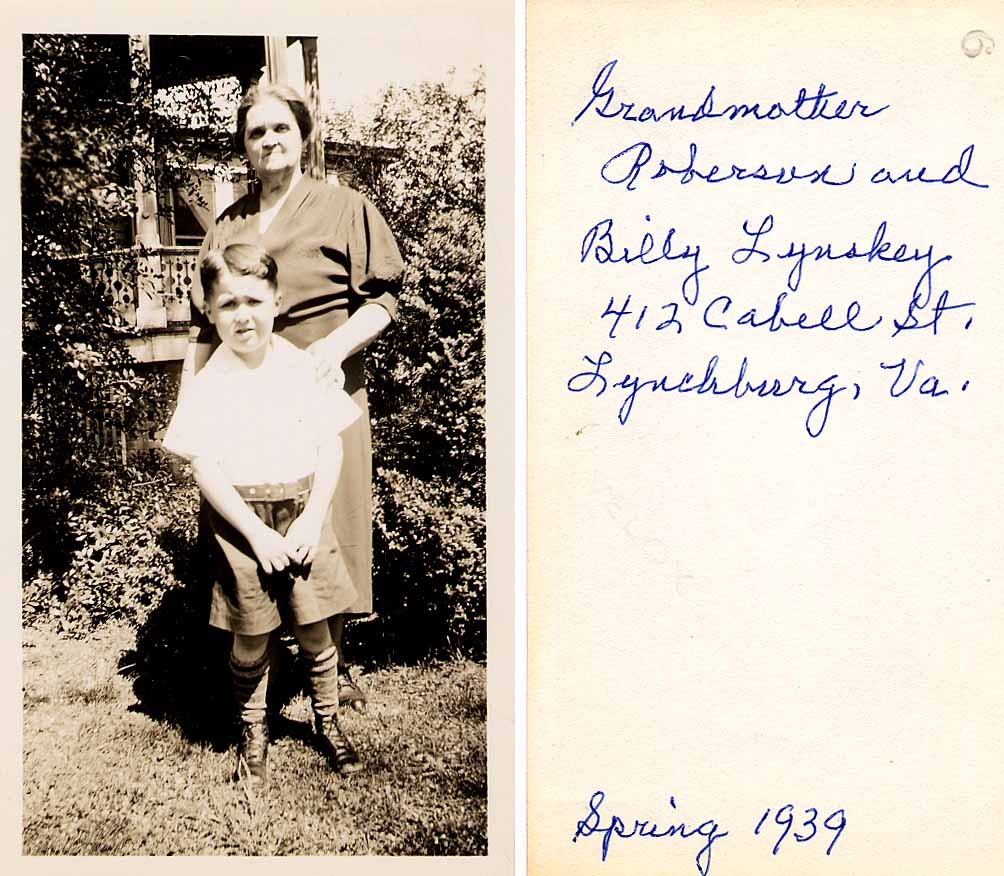 Grandmother
Roberson and
Billy Lynskey
412 Cabell St.
Lynchburg, Va.
Spring 1939